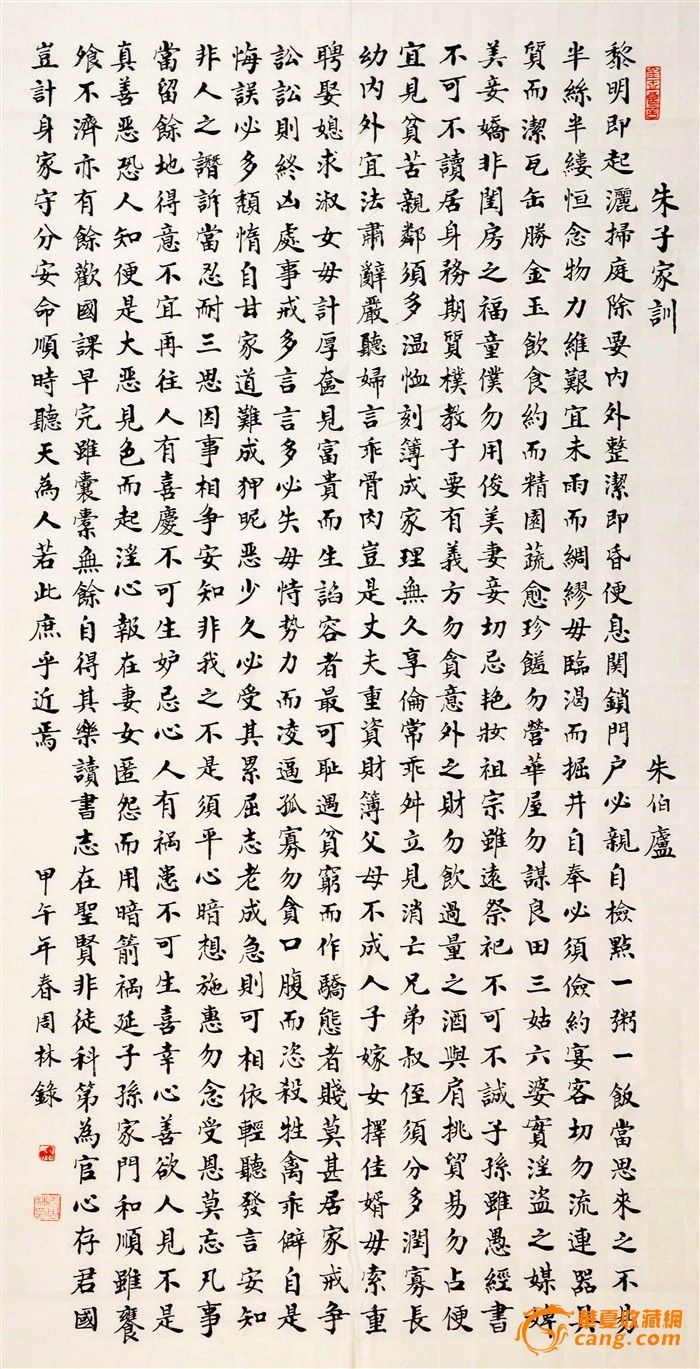 朱子家訓 朱伯廬
黎明即起灑掃庭除要內外整潔即昏便息関鎖門户必親自檢點一粥一飯當思來之不易
半絲半縷恒念物力維艱宜未雨而綢繆毋臨渴而掘井自奉必須儉約宴客切勿流連器具
質而潔瓦缶勝金玉飲食約而精園蔬愈珍饈勿營華屋勿謀良田三姑六婆實淫盜之媒婢
美妾嬌非閨房之福童僕勿用俊美妻妾切忌艳妝祖宗雖遠祭祀不可不誠子孫雖愚經書
不可不讀居身務期質樸教子要有義方勿貪意外之財勿飲過量之酒與肩挑貿易勿占便
宜見貧苦親鄰須多温恤刻簿成家理無久享倫常乖舛立見消亡兄弟叔侄須分多潤寡長
幼內外宜法肅辭嚴聽婦言乖骨肉豈是丈夫重資財簿父母不成人子嫁女擇佳婿毋索重
聘娶媳求淑女毋計厚奩見富貴而生諂容者最可耻遇貧窮而作驕態者賤莫甚居家戒争
訟訟則終凶處事戒多言言多必失毋恃勢力而凌逼孤寡勿貪口腹而恣殺牲禽乖僻自是
悔誤必多頹惰自甘家道難成狎昵恶少久必受其累屈志老成急則可相依輕聽發言安知
非人之譖訴當忍耐三思因事相争安知非我之不是須平心暗想施惠勿念受恩莫忘凡事
當留餘地得意不宜再往人有喜慶不可生妒忌心人有禍患不可生喜幸心善欲人見不是
真善恶恐人知便是大恶見色而起淫心報在妻女匿怨而用暗箭禍延子孫家門和順雖饔
飧不濟亦有餘歡國課早完雖囊橐無餘自得其樂讀書志在聖賢非徒科第為官心存君國
豈計身家守分安命順時聽天為人若此庶乎近焉 甲午年春周林錄
華夏收藏網
cang.com